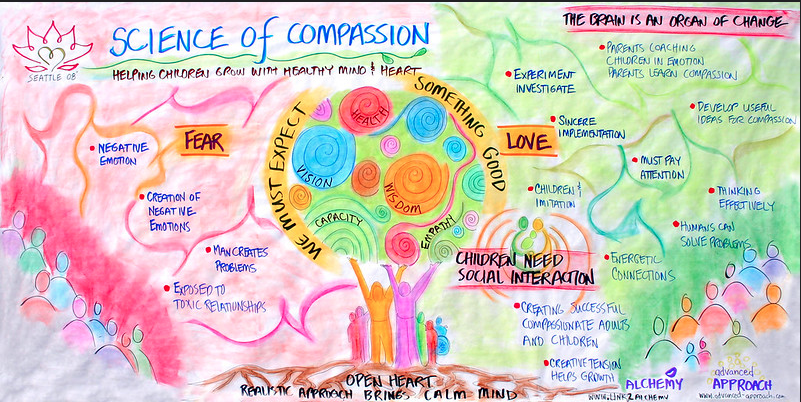 SCIENCE of COMPASSION
HELPING CHILDREN GROW WITH HEALTHY MIND & HEART
SEATTLE 08'
THE BRAIN IS AN ORGAN OF CHANGE
PARENTS COACHING
CHILDREN IN EMOTION
PARENTS LEARN COMPASSION
EXPERIMENT
INVESTIGATE
DEVELOP USEFUL
IDEAS FOR COMPASSION
SINCERE
IMPLEMENTATION
FEAR
LOVE
NEGATIVE
EMOTION
CREATION OF
NEGATIVE
EMOTIONS
MAN CREATES
PROBLEMS
EXPOSED TO
TOXIC RELATIONSHIPS
WE MUST EXPECT
SOMETHING GOOD
HEALTH
VISION
WISDOM
CAPACITY
EMPATHY
MUST PAY
ATTENTION
CHILDREN &
IMITATION
THINKING
EFFECTIVELY
HUMANS CAN
SOLVE PROBLEMS
CHILDREN NEED
SOCIAL INTERACTION
ENERGETIC
CONNECTIONS
CREATING SUCCESSFUL
COMPASSIONATE ADULTS
AND CHILDREN
CREATIVE TENSION
HELPS GROWTH
OPEN HEART
REALISTIC APPROACH BRINGS CALM MIND
ALCHEMY
WWW.LINK2ALCHEMY
advanced
APPROACH
www.advanced-approach.com